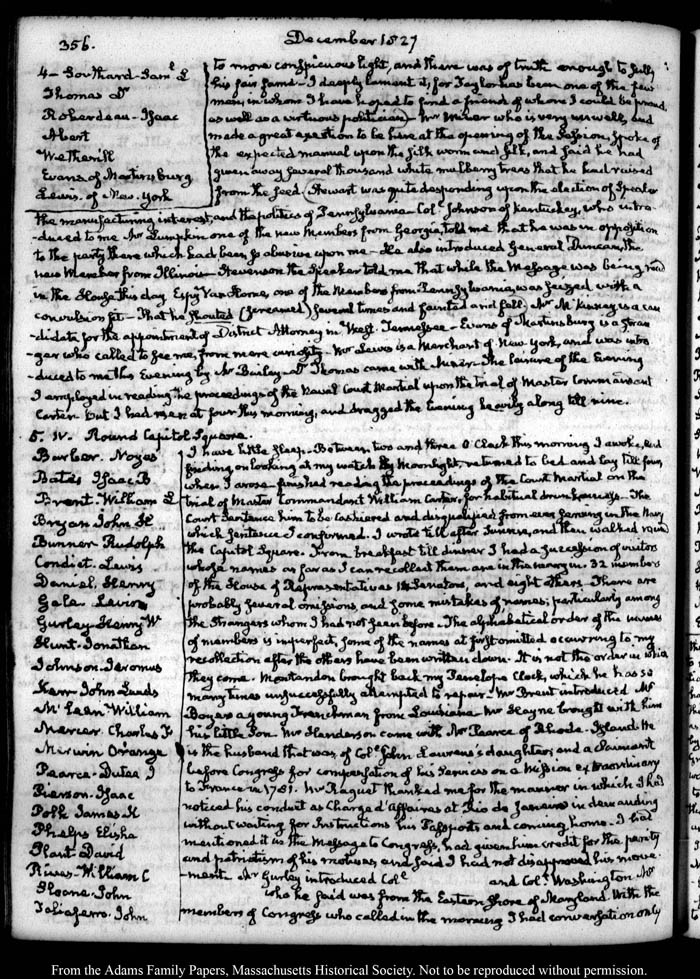 356.
December 1827
4 - Southard - Sam.l L
Thomas Dr
Roberdeau - Isaac
Abert
Wetherill
Evans of Martinsburg
Lewis. of New-York
to more conspicuous light, and there was of truth enough to sully
his fair fame - I deeply lament it, for Taylor has been one of the few
men, in whom I have hoped to find a friend of whom I could be proud,
as well as a virtuous politician - Mr Miner who is very unwell, and
made a great exertion to be here at the opening of the Session, spoke of
the expected manual upon the silk worm and silk, and said he had
given away several thousand white mulberry trees that he had raised
from the seed. Stewart was quite desponding upon the election of Speaker
the manufacturing interest, and the politics of Pennsylvania - Col.l Johnson of Kentucky, who intro-
-duced to me Mr Lumpkin one of the new Members from Georgia, told me that he was in opposition
to the party there which had been so abusive upon me - He also introduced General Duncan, the
new Member from Illinois - Stevenson the Speaker told me that while the Message was being read
in the House this day Espy Van Horne, one of the Members from Pennsylvania, was seized with a
convulsion fit - That he shouted (screamed) several times and fainted and fell. Mr McKinney is a can
-didate for the appointment of District Attorney in West-Tennessee - Evans of Martinsburg is a stran
-ger who called to see me, from mere curiosity - Mr Lewis is a Merchant of New York, and was intro
-duced to me this Evening by Mr Bailey - Dr Thomas came with Miner. The leisure of the Evening
I employed in reading the proceedings of the Naval Court Martial upon the trial of Master Commandant
Carter. but I had risen at four this morning, and dragged the Evening heavily along till nine.
5. IV. Round Capitol Square.
Barber. Noyes
Bates Isaac B
Brent - William L
Bryan John H
Bunner Rudolph
Condict. Lewis
Daniel. Henry
Gale Levin
Gurley Henry W
Hunt - Jonathan
Johnson - Jeromus
Kerr John Leeds
McLean William
Mercer Charles F
Merwin Orange
Pearce - Dutee J
Pierson - Isaac
Polk James K
Phelps Elisha
Plant David
Rives - William C
Sloane. John
Taliaferro. John
I have little sleep - Between two and three O'Clock this morning I awoke, and
finding on looking at my watch by Moonlight, returned to bed and lay till four,
when I arose - finished reading the proceedings of the Court Martial on the
trial of Master Commandant William Carter, for habitual drunkenness - The
Court Sentence him to be Cashiered and disqualified from ever serving in the Navy
which sentence I confirmed. I wrote till after Sunrise, and then walked round
the Capitol Square. From breakfast till dinner I had a succession of visitors
whose names as far as I can recollect them are in the margin. 32 members
of the House of Representatives Senators, and eight others. There are
probably several omissions, and some mistakes of names; particularly among
the Strangers whom I had not seen before - The alphabetical order of the names
of members is imperfect, some of the names at first omitted occurring to my
recollection after the others have been written down. It is not the order in which
they came. Montandon brought back my Penelope Clock, which he has so
many times unsuccessfully attempted to repair - Mr Brent introduced Mr
Boyer a young Frenchman from Louisiana. Mr Hayne brought with him
his little Son. Mr Henderson came with Mr Pearce of Rhode-Island. He
is the husband that was, of Col.l John Laurens's daughter; and a Claimant
before Congress for compensation of his services on a Mission extraordinary
to France in 1781. Mr Raguet thanked me for the manner in which I had
noticed his conduct as Chargé d'Affaires at Rio de Janeiro in demanding
without waiting for Instructions his Passports and coming home. I had
mentioned it in the Message to Congress, had given him credit for the purity
and patriotism of his motives, and said I had not disapproved his move-
-ment. Mr Gurley introduced Col.l and Col.l Washington. Mr
who he said was from the Eastern Shore of Maryland. With the
members of Congress who called in the morning I had conversation only
From the Adams Family Papers, Massachusetts Historical Society. Not to be reproduced without permission.